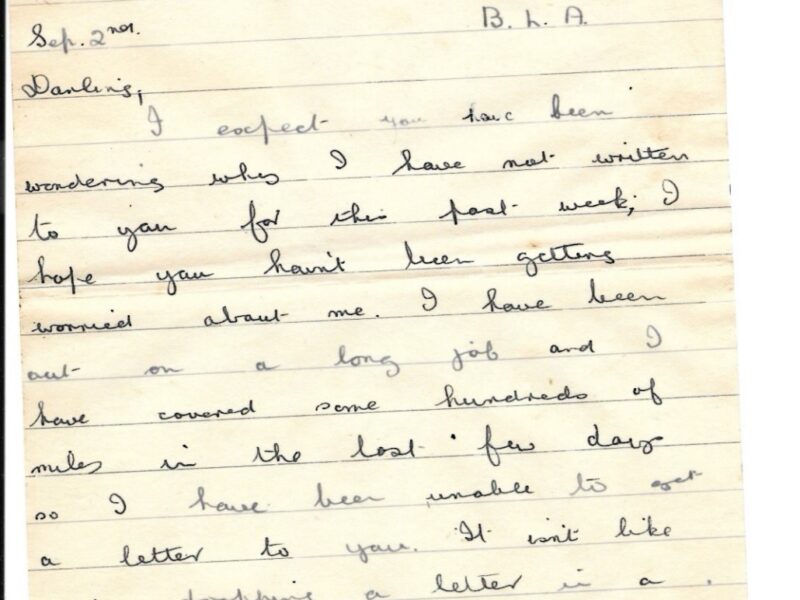 B. L. A.
Sep. 2nd.
Darling,
I expect you have been
wondering why I have not written
to you for this past week; I
hope you havn't been getting
worried about me. I have been
out on a long job and I
have covered some hundreds of
miles in the last few days
so I have been unable to get
a letter to you. It isn't like
dropping a letter in a